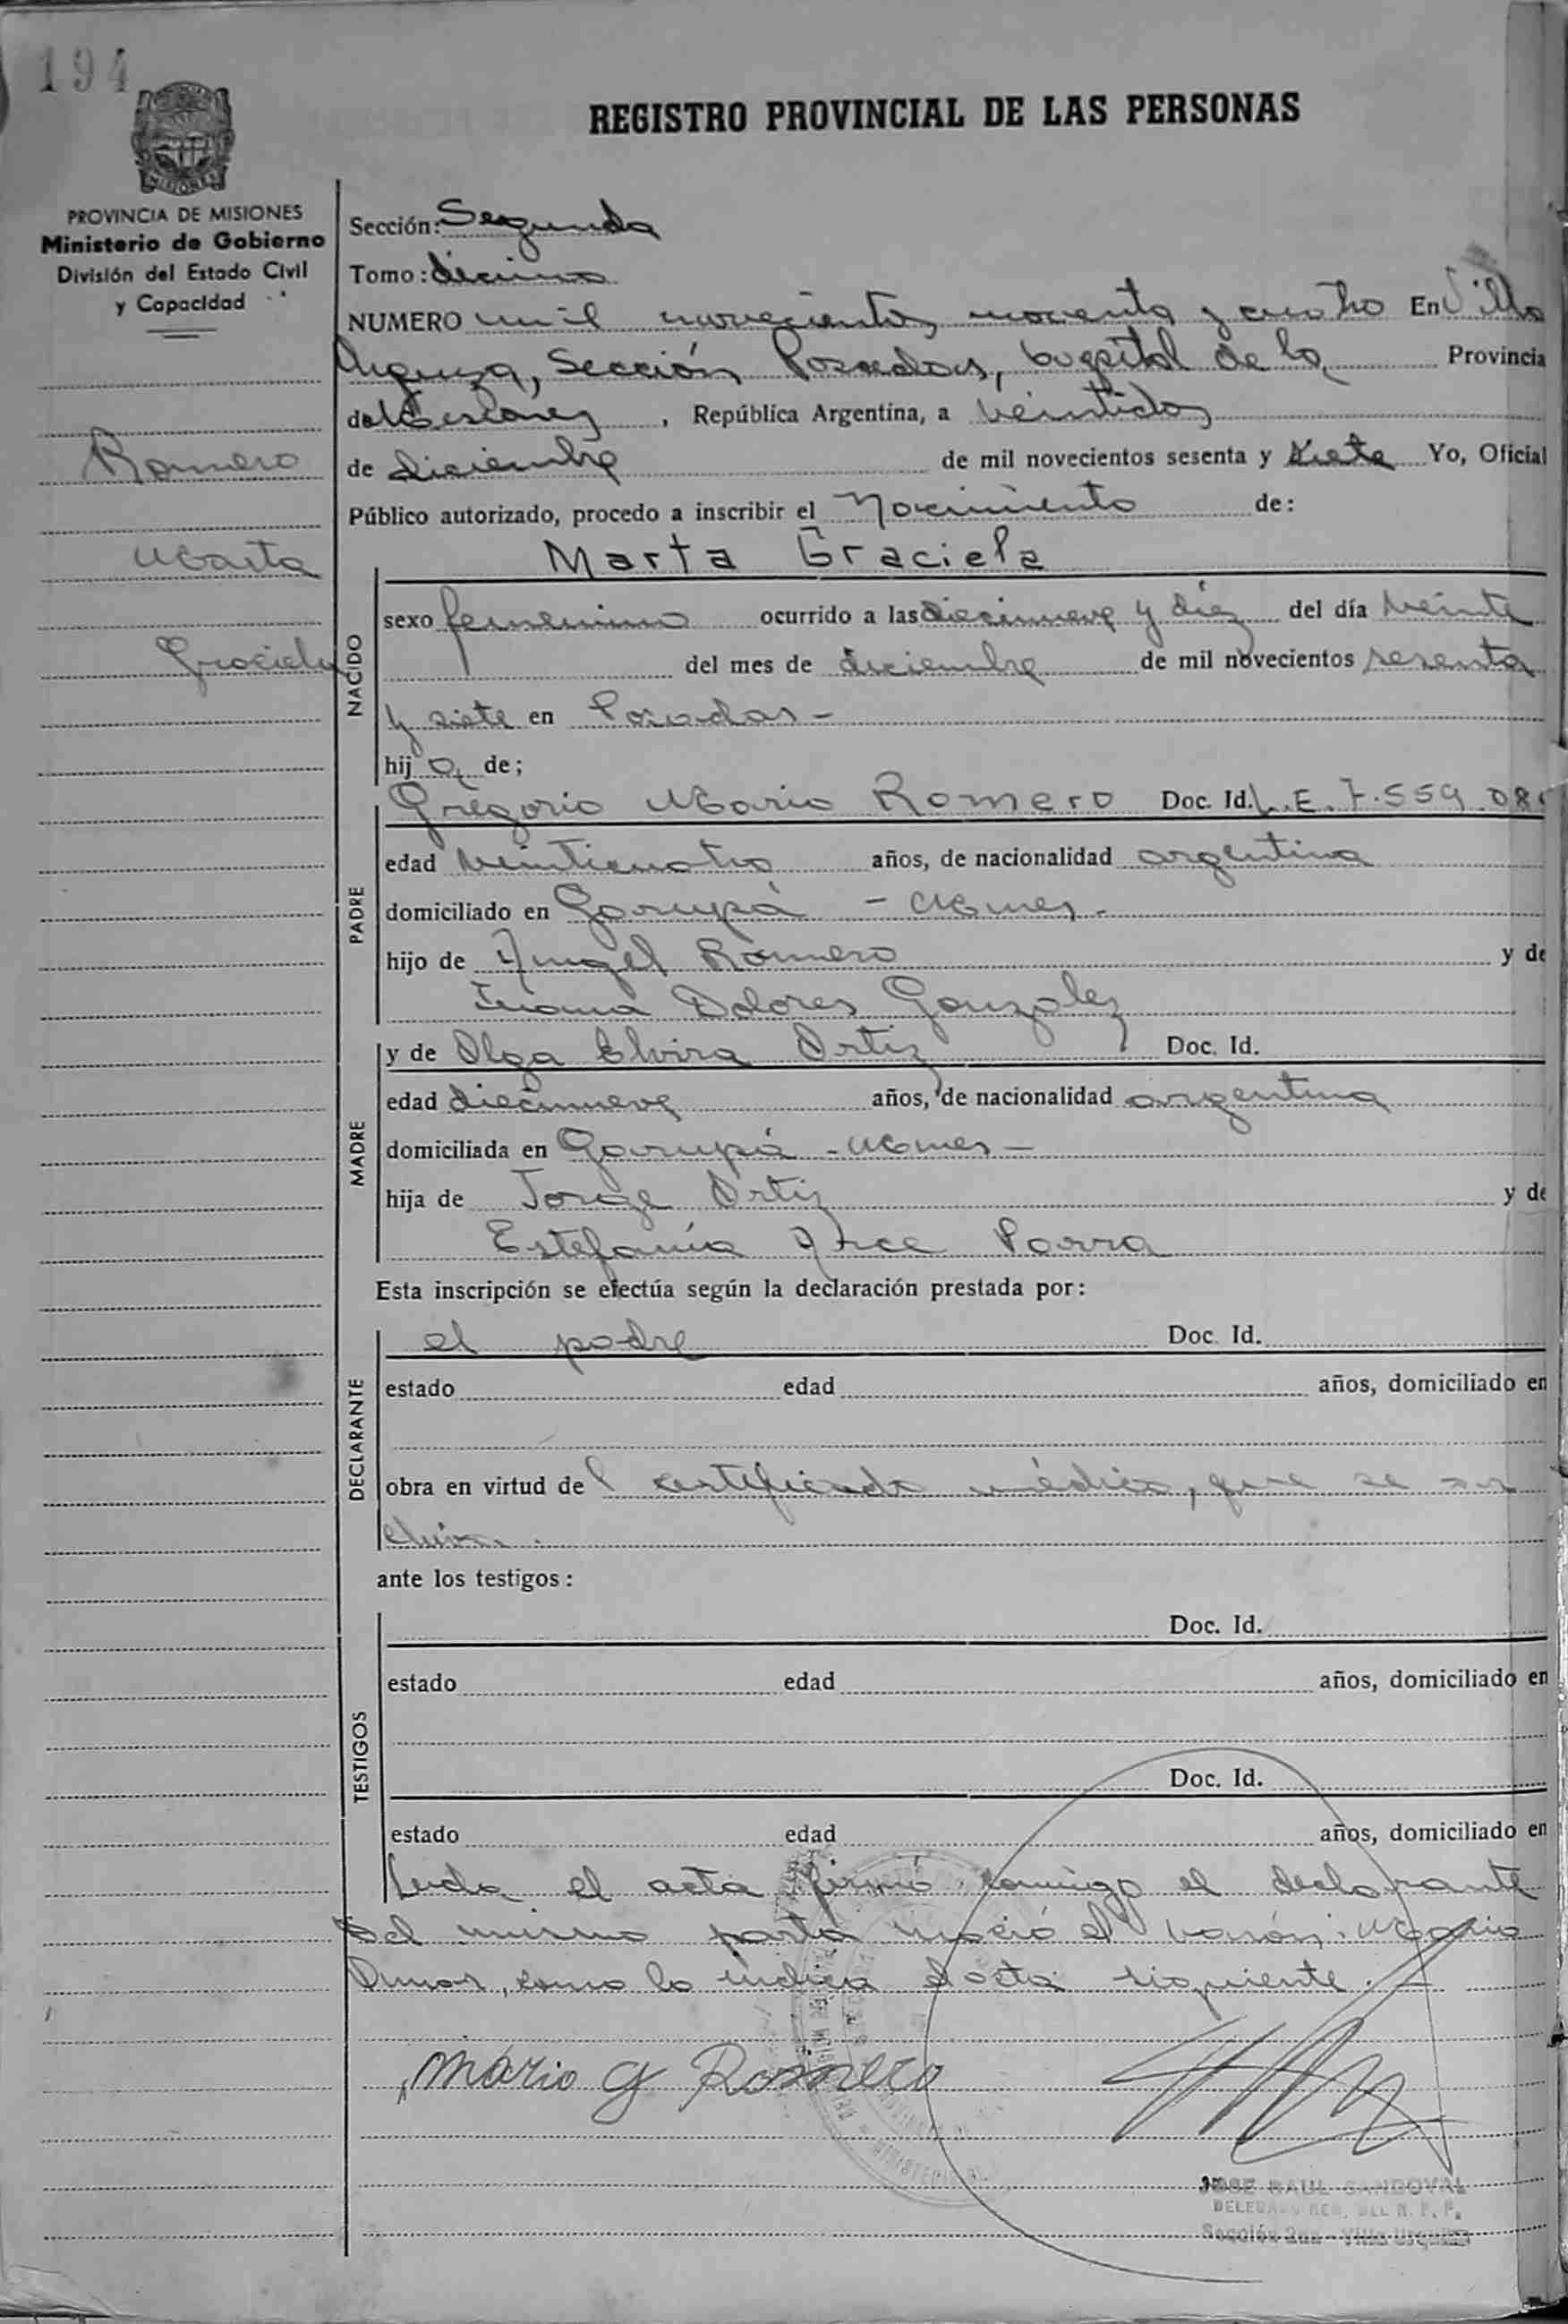 194
REGISTRO PROVINCIAL DE LAS PERSONAS
MISIONES
PROVINCIA DE MISIONES
Ministerio de Gobierno
División del Estado Civil
y Capacidad
Romero
Marta
Graciela
Sección: Segunda
Tomo: décimo
NUMERO mil novecientos noventa y cuatro En Villa
Urquiza, Sección Posadas, Capital de la Provincia
de Misiones, República Argentina, a veintidos
de diciembre de mil novecientos sesenta y siete Yo, Oficial
Público autorizado, procedo a inscribir el Nacimiento de:
Marta Graciela
NACIDO
sexo femenino ocurrido a las diecinueve y diez del día veinte
del mes de diciembre de mil novecientos sesenta
y siete en Posadas -
hij a de;
PADRE
Gregorio Mario Romero Doc. Id. L.E. 7.559.08
edad veinticuatro años, de nacionalidad argentina
domiciliado en Garupá - Mnes.
hijo de Angel Romero y de
Juana Dolores Gonzalez
MADRE
y de Olga Elvira Ortiz Doc. Id.
edad diecinueve años, de nacionalidad argentina
domiciliada en Garupá - Mnes -
hija de Jorge Ortiz y de
Estefanía Arce Parra
Esta inscripción se efectúa según la declaración prestada por:
DECLARANTE
el padre Doc. Id.
estado edad años, domiciliado en
obra en virtud de l certificado médico, que se ar
chiva.
ante los testigos:
TESTIGOS
Doc. Id.
estado edad años, domiciliado en
Doc. Id.
estado edad años, domiciliado en
Leida el acta firmó conmigo el declarante
Del mismo parto nació el varón: Mario
Omar, como lo indica el acta siguiente. -
Mario G Romero
JOSE RAUL SANDOVAL
DELEGADO DEL R. P. P.
Sección 2da - Villa Urquiza